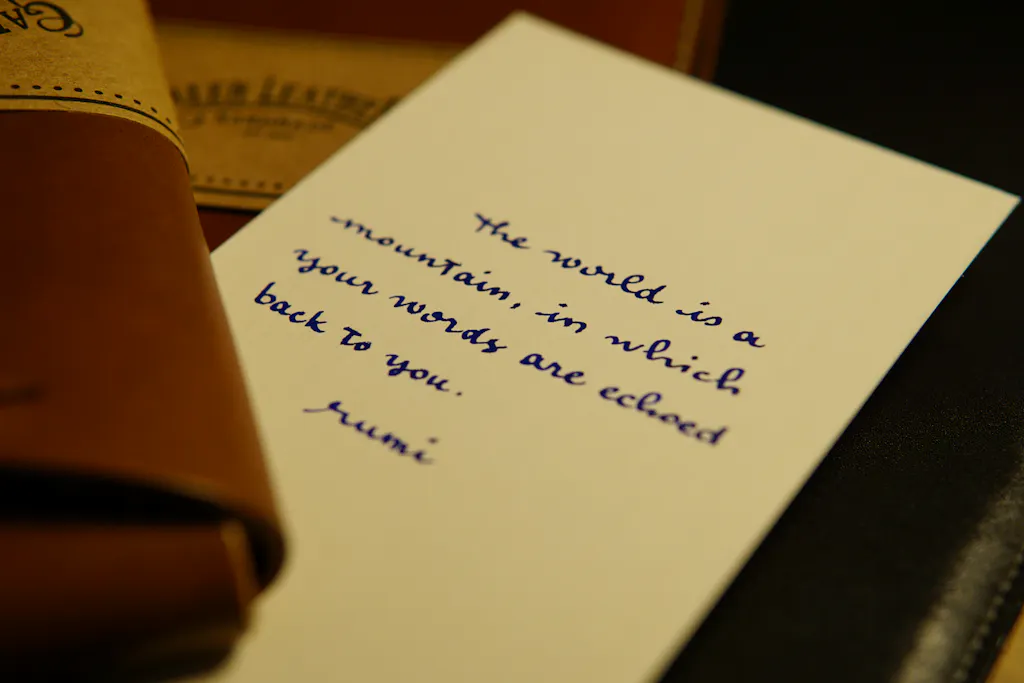 Leather
the world is a
mountain, in which
your words are echoed
back to you.
rumi